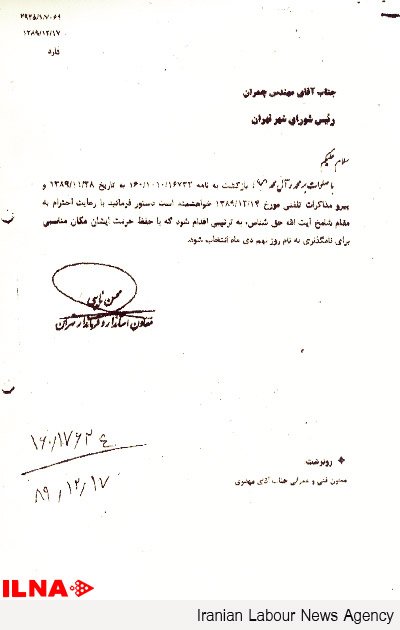 ۲۹۲۵/۱/۷۰۶۹
۱۳۸۹/۱۲/۱۷
دارد
جناب آقای مهندس چمران
رئیس شورای شهر تهران
سلام علیکم
با صلوات بر محمد و آل محمد ؛ بازگشت به نامه ۱۶۰/۱۰۱۰/۱۶۷۳۲ به تاریخ ۱۳۸۹/۱۱/۲۸ و
پیرو مذاکرات تلفنی مورخ ۱۳۸۹/۱۲/۱۴ خواهشمند است دستور فرمائید با رعایت احترام به
مقام شامخ آیت الله حق شناس، به ترتیبی اقدام شود که با حفظ حرمت ایشان مکان مناسبی
برای نامگذاری به نام روز نهم دی ماه انتخاب شود.
محسن نایبی
معاون استاندار و فرماندار تهران
۱۶۰/۱۷۶۲۴
۸۹/۱۲/۱۷
رونوشت
معاون فنی و عمرانی جناب آقای مهدوی
ILNA
Iranian Labour News Agency